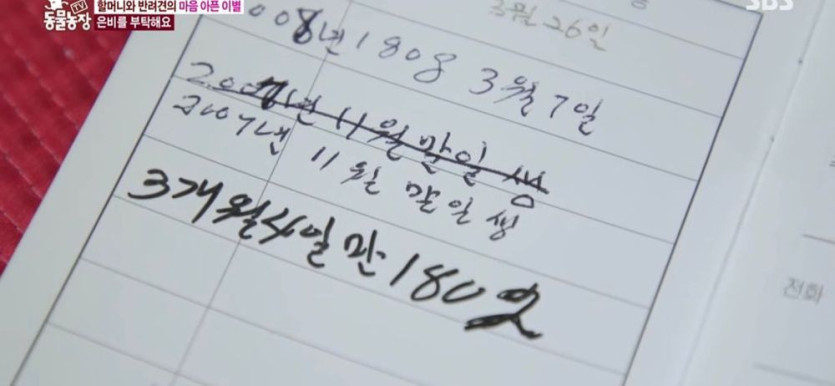 TV
동물농장
할머니와 반려견의 마음 아픈 이별
은비를 부탁해요
SBS
3월 26일
2008년 1808 3월 7일
2007년 11월 말일 생
2007년 11월 말일 생
3개월 4일만 180
전화